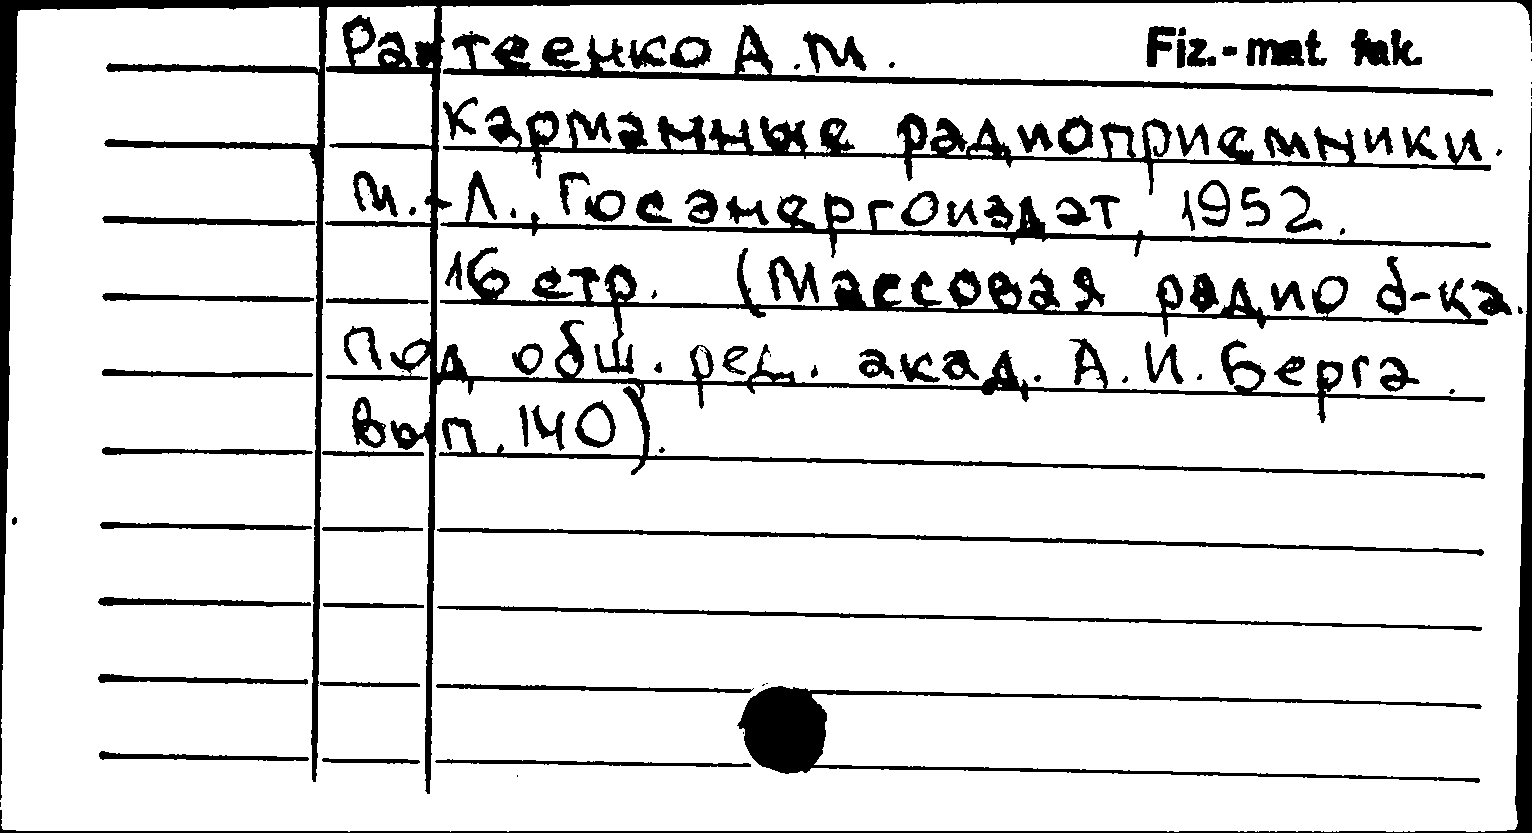 Рахтеенко А.М. Fiz.-mat. fak.
Карманные радиоприемники.
М.-Л., Госэнергоиздат, 1952.
16 стр. (Массовая радио б-ка.
Под общ. ред. акад. А.И. Берга.
вып. 140).